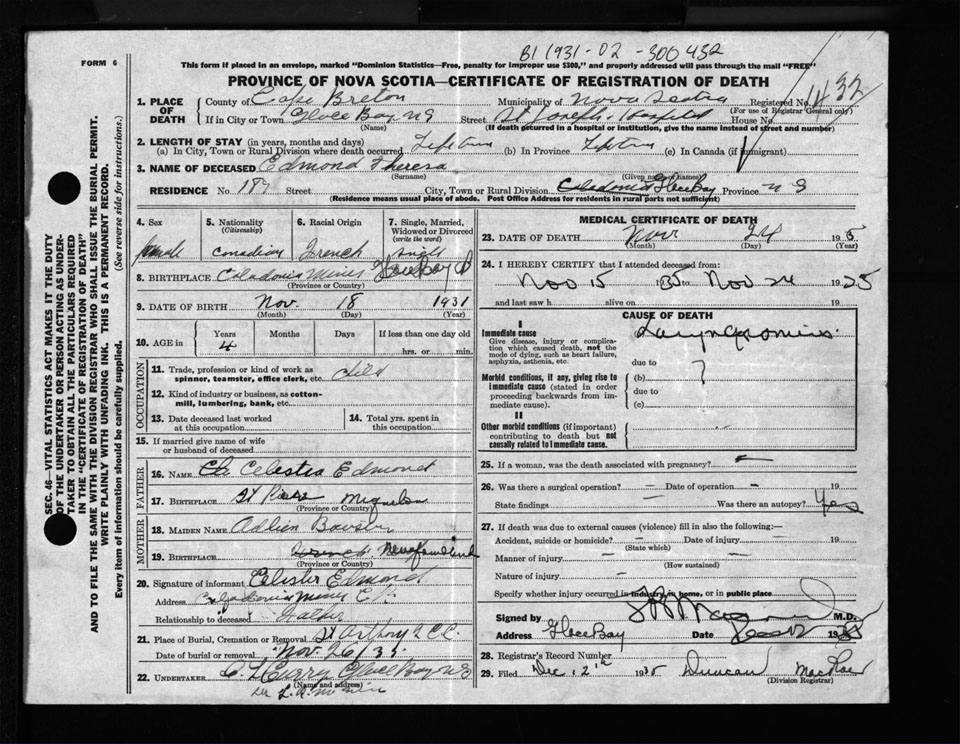 B1 1931-02-300432
FORM 6
This form if placed in an envelope, marked "Dominion Statistics—Free, penalty for improper use $300," and properly addressed will pass through the mail "FREE"
PROVINCE OF NOVA SCOTIA—CERTIFICATE OF REGISTRATION OF DEATH
432
SEC. 46—VITAL STATISTICS ACT MAKES IT THE DUTY
OF THE UNDERTAKER OR PERSON ACTING AS UNDER-
TAKER TO OBTAIN ALL THE PARTICULARS REQUIRED
IN THE "CERTIFICATE OF REGISTRATION OF DEATH"
AND TO FILE THE SAME WITH THE DIVISION REGISTRAR WHO SHALL ISSUE THE BURIAL PERMIT.
WRITE PLAINLY WITH UNFADING INK. THIS IS A PERMANENT RECORD.
Every item of information should be carefully supplied. (See reverse side for instructions.)
1. PLACE OF DEATH
County of Cape Breton Municipality of Nova Scotia Registered No.
(For use of Registrar General only)
If in City or Town Glace Bay NS Street St Joseph's Hospital House No.
(Name) (If death occurred in a hospital or institution, give the name instead of street and number)
2. LENGTH OF STAY (in years, months and days)
(a) In City, Town or Rural Division where death occurred Lifetime (b) In Province Lifetime (c) In Canada (if immigrant)
3. NAME OF DECEASED Edmond Theresa
(Surname) (Given name or names)
RESIDENCE No. 187 Street City, Town or Rural Division Caledonia Glace Bay Province N S
(Residence means usual place of abode. Post Office Address for residents in rural parts not sufficient)
4. Sex
female
5. Nationality
(Citizenship)
Canadian
6. Racial Origin
French
7. Single, Married,
Widowed or Divorced
(write the word)
single
8. BIRTHPLACE Caledonia Mines Glace Bay
(Province or Country)
9. DATE OF BIRTH Nov. 18 1931
(Month) (Day) (Year)
10. AGE in
Years Months Days If less than one day old
4 hrs. or min.
OCCUPATION
11. Trade, profession or kind of work as
spinner, teamster, office clerk, etc. child
12. Kind of industry or business, as cotton-
mill, lumbering, bank, etc.
13. Date deceased last worked
at this occupation
14. Total yrs. spent in
this occupation
15. If married give name of wife
or husband of deceased
FATHER
16. NAME Celestia Edmond
17. BIRTHPLACE St Pierre Miquelon
(Province or Country)
MOTHER
18. MAIDEN NAME Adlien
19. BIRTHPLACE French Newfoundland
(Province or Country)
20. Signature of informant Celester Edmond
Address Caledonia Mines C.B.
Relationship to deceased Father
21. Place of Burial, Cremation or Removal St Anthony
Date of burial or removal Nov. 26/35
22. UNDERTAKER Glace Bay NS
(Name and address)
MEDICAL CERTIFICATE OF DEATH
23. DATE OF DEATH Nov 24 1935
(Month) (Day) (Year)
24. I HEREBY CERTIFY that I attended deceased from:
Nov 15 1935 to Nov 24 1935
and last saw h alive on 19
CAUSE OF DEATH
I
Immediate cause
Give disease, injury or complica-
tion which caused death, not the
mode of dying, such as heart failure,
asphyxia, asthenia, etc.
due to
Morbid conditions, if any, giving rise to
immediate cause (stated in order
proceeding backwards from im-
mediate cause).
(b) ?
due to
(c)
II
Other morbid conditions (if important)
contributing to death but not
causally related to immediate cause.
25. If a woman, was the death associated with pregnancy? —
26. Was there a surgical operation? — Date of operation — 19
State findings — Was there an autopsy? Yes
27. If death was due to external causes (violence) fill in also the following:—
Accident, suicide or homicide? — Date of injury — 19
(State which)
Manner of injury —
(How sustained)
Nature of injury —
Specify whether injury occurred in industry, in home, or in public place
Signed by M.D.
Address Glace Bay Date 19
28. Registrar's Record Number
29. Filed Dec. 12th 1935 Duncan MacRae
(Division Registrar)